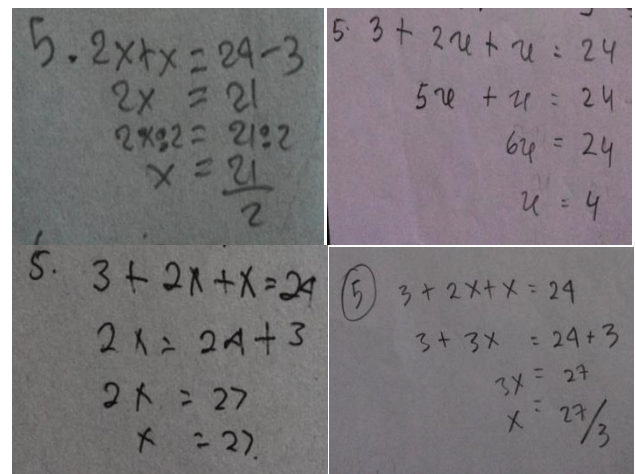 5. 2x+x = 24-3
2x = 21
2x:2 = 21:2
x = 21/2
5. 3 + 2x + x = 24
5x + x = 24
6x = 24
x = 4
5. 3 + 2x + x = 24
2x = 24 + 3
2x = 27
x = 27.
5 3 + 2x + x = 24
3 + 3x = 24 + 3
3x = 27
x = 27/3